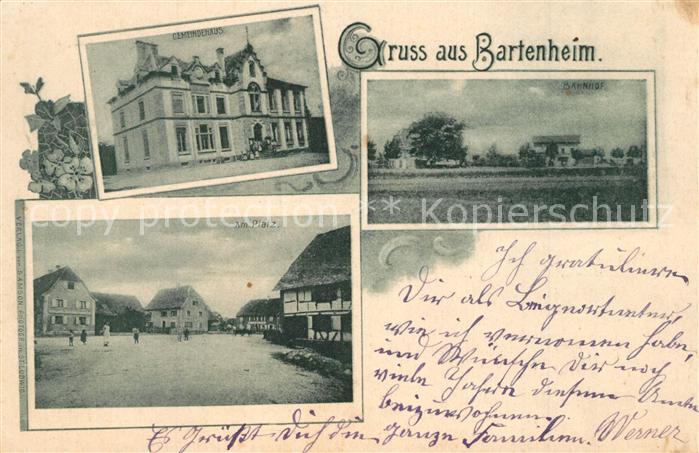 Gruss aus Bartenheim.
GEMEINDEHAUS
BAHNHOF
Am Platz.
VERLAG v. SAMSON, PHOTOGR. in ST. LUDWIG
copy protection Kopierschutz
Ich gratuliere
Dir als Beigeortneter,
wie ich vernomen habe,
und Wünsche Dir noch
viele Jahre diesem Amte
beizuwohnen.
Es Grüßt Dich die ganze Familien. Werner